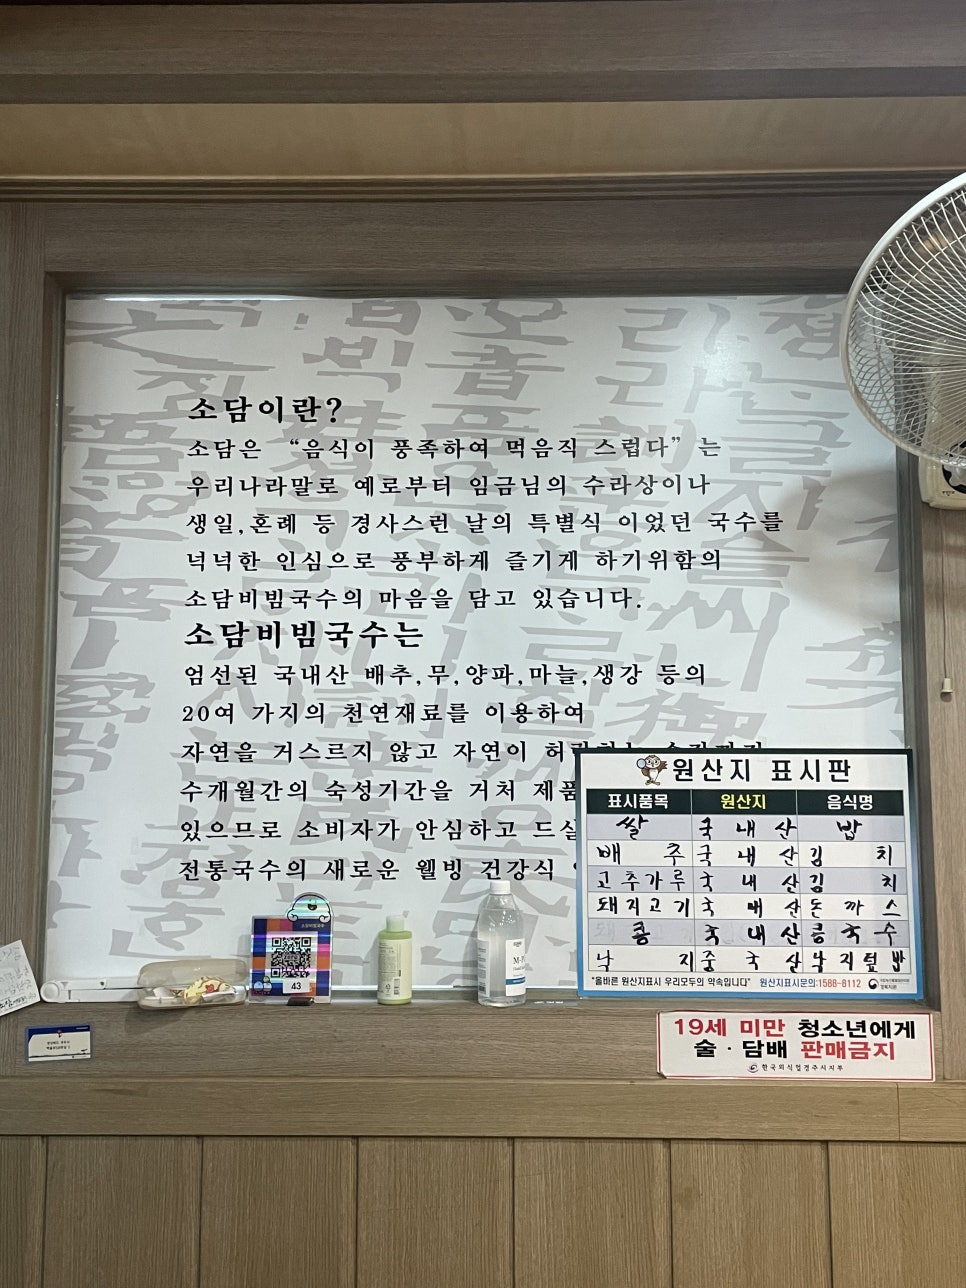 소담이란?
소담은 “음식이 풍족하여 먹음직 스럽다” 는
우리나라말로 예로부터 임금님의 수라상이나
생일,혼례 등 경사스런 날의 특별식 이었던 국수를
넉넉한 인심으로 풍부하게 즐기게 하기위함의
소담비빔국수의 마음을 담고 있습니다.
소담비빔국수는
엄선된 국내산 배추,무,양파,마늘,생강 등의
20여 가지의 천연재료를 이용하여
자연을 거스르지 않고 자연이
수개월간의 숙성기간을 거처 제품
있으므로 소비자가 안심하고 드실
전통국수의 새로운 웰빙 건강식
원산지 표시판
표시품목 원산지 음식명
쌀 국내산 밥
배추 국내산 김치
고추가루 국내산 김치
돼지고기 국내산 돈까스
콩 국내산 콩국수
낙지 중국산 낙지덮밥
"올바른 원산지표시 우리모두의 약속입니다" 원산지표시문의:1588-8112
소담비빔국수
43
19세 미만 청소년에게
술 · 담배 판매금지
한국외식업경주시지부